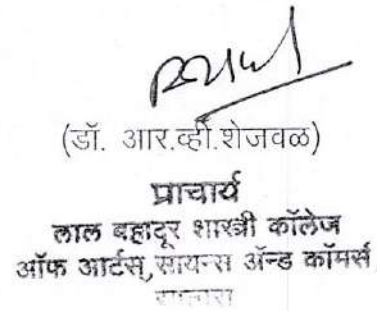 (डॉ. आर.व्ही.शेजवळ)
प्राचार्य
लाल बहादूर शास्त्री कॉलेज
ऑफ आर्टस्,सायन्स ॲन्ड कॉमर्स